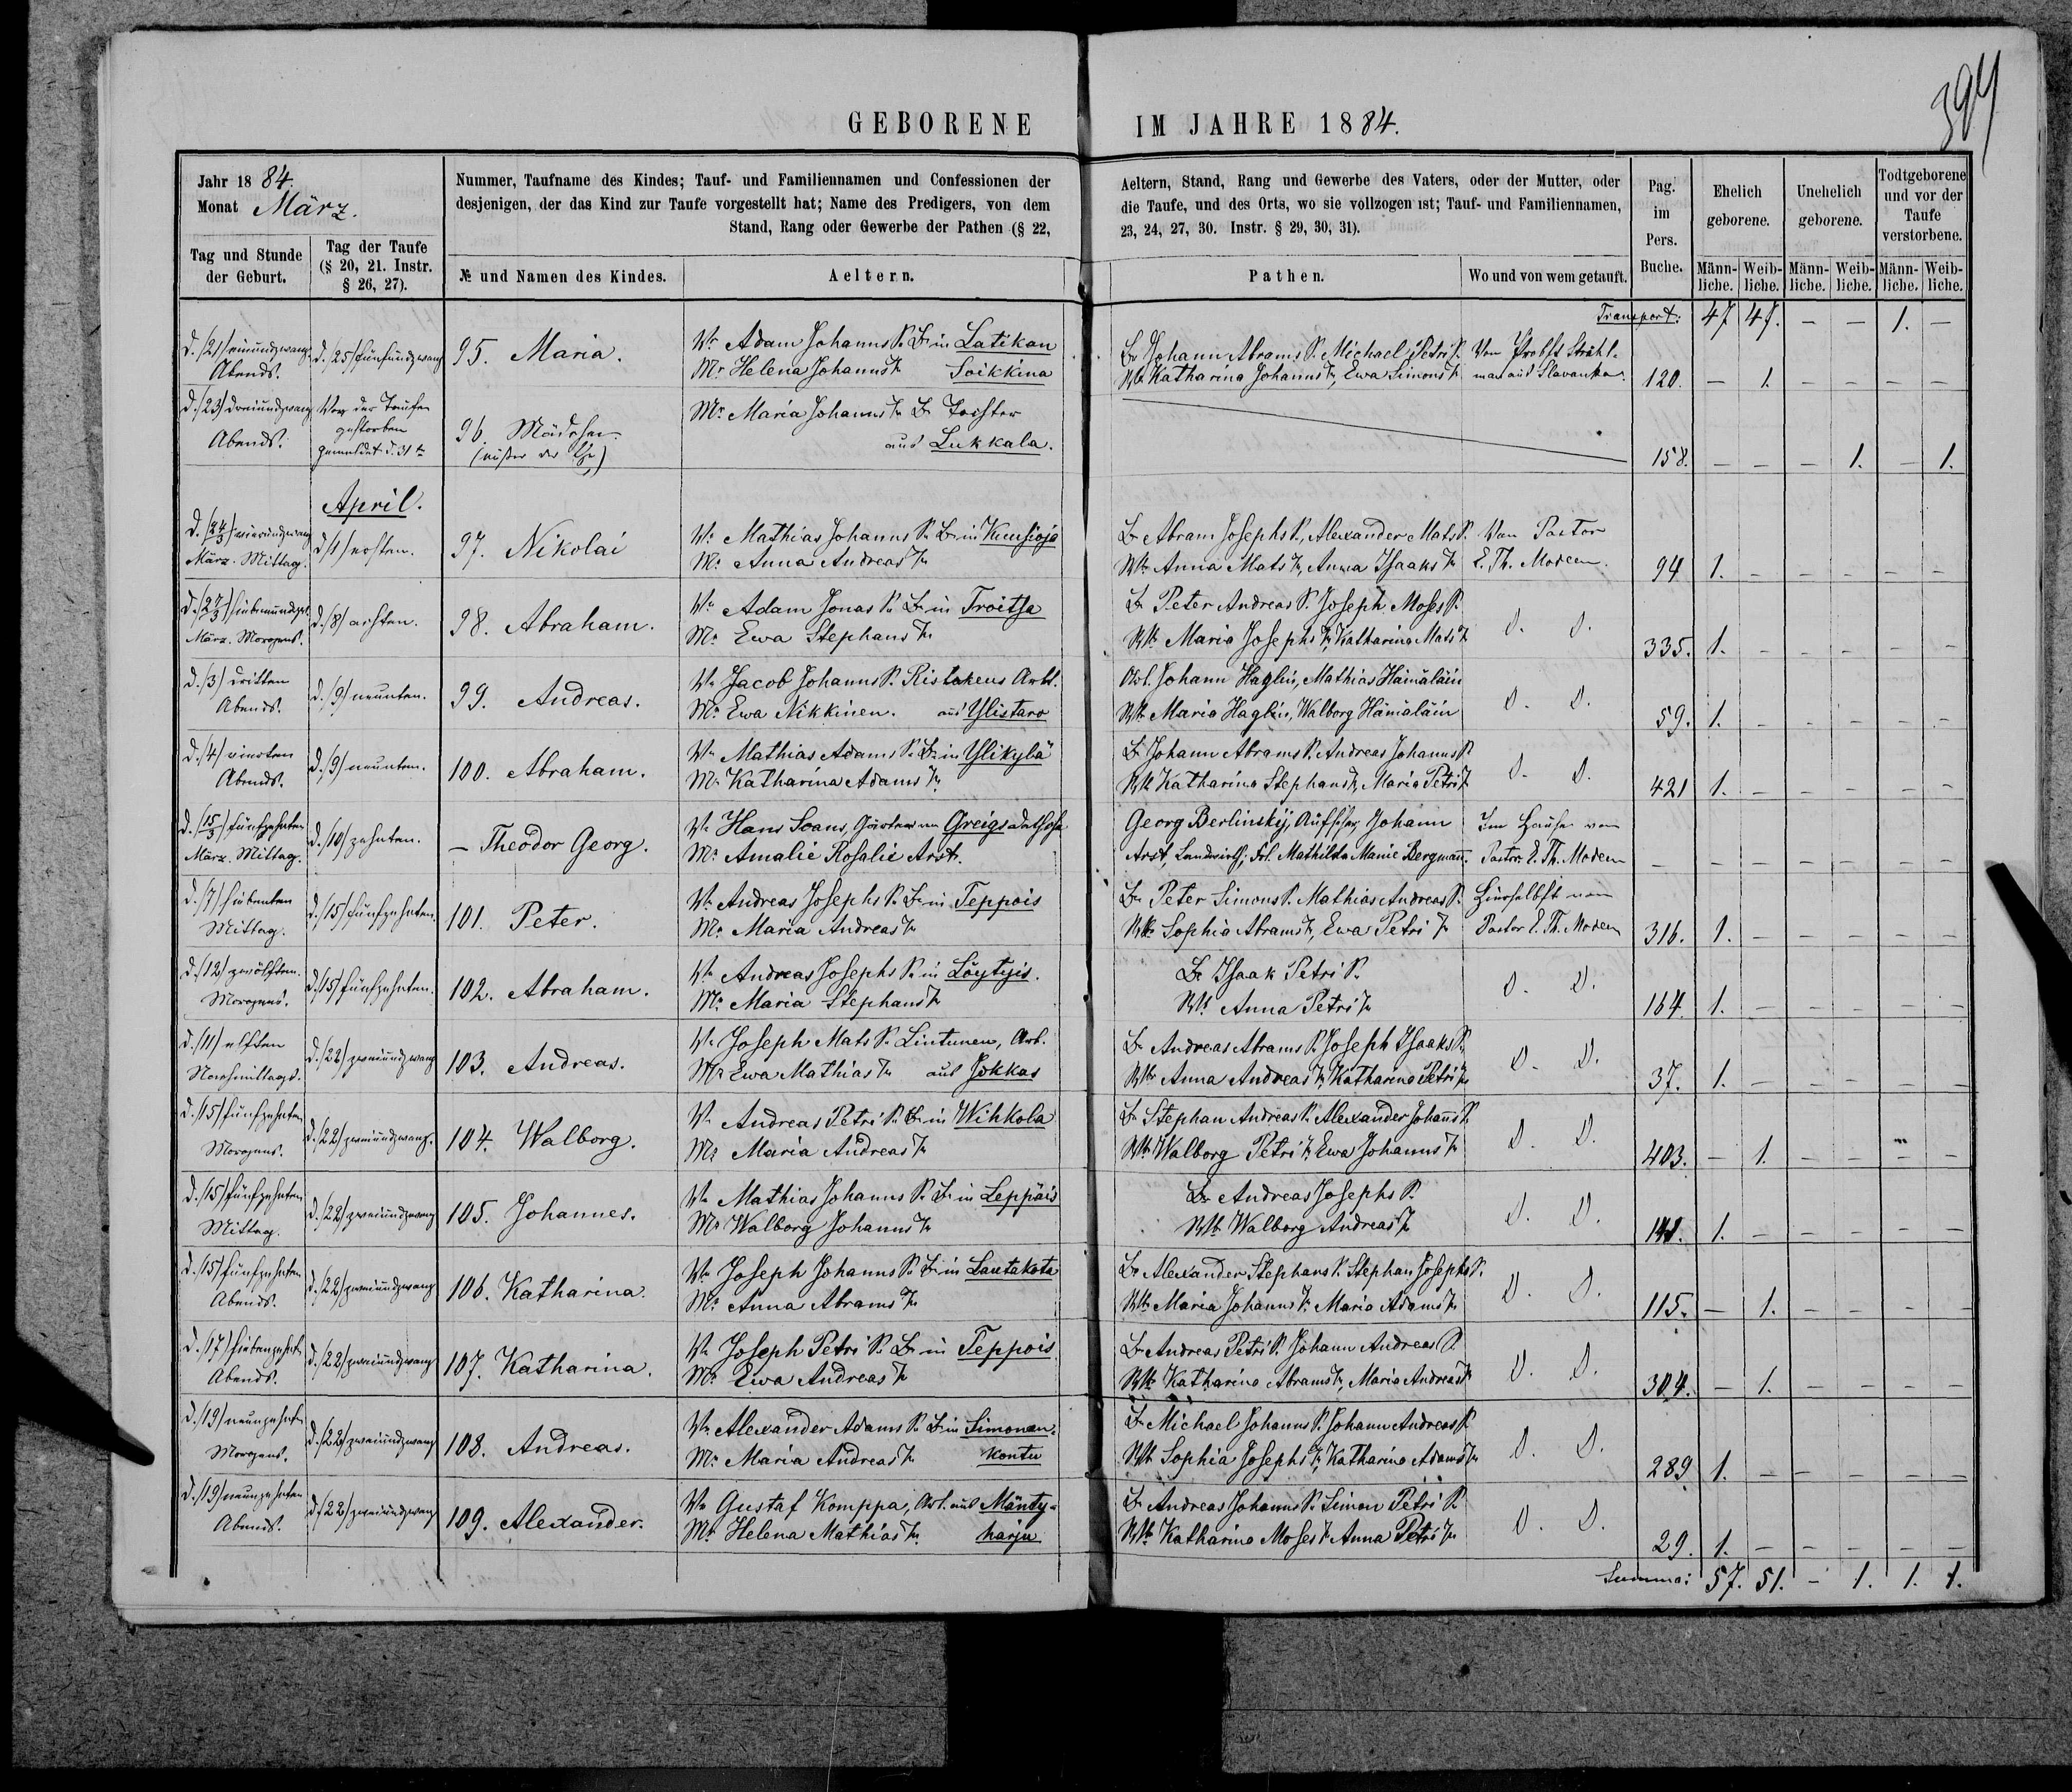 394
GEBORENE IM JAHRE 1884.
Jahr 1884.
Monat März.
Nummer, Taufname des Kindes; Tauf- und Familiennamen und Confessionen der
desjenigen, der das Kind zur Taufe vorgestellt hat; Name des Predigers, von dem
Stand, Rang oder Gewerbe der Pathen (§ 22,
Aeltern, Stand, Rang und Gewerbe des Vaters, oder der Mutter, oder
die Taufe, und des Orts, wo sie vollzogen ist; Tauf- und Familiennamen,
23, 24, 27, 30. Instr. § 29, 30, 31).
Pag.
im
Pers.
Buche.
Ehelich
geborene.
Unehelich
geborene.
Todtgeborene
und vor der
Taufe
verstorbene.
Tag und Stunde
der Geburt.
Tag der Taufe
(§ 20, 21. Instr.
§ 26, 27).
№ und Namen des Kindes.
Aeltern.
Pathen.
Wo und von wem getauft.
Männ-liche. Weib-liche. Männ-liche. Weib-liche. Männ-liche. Weib-liche.
Transport: 47 47. – – 1. –
d. (21) einundzwanz
Abends.
d. (25) fünfundzwanz
95. Maria.
Vr Adam Johanns S. Br in Latikan
Mr Helena Johanns Tr Soikkina
Br Johann Abrams S. Michael Petri S.
Wbr Katharina Johanns Tr, Ewa Simons Tr
Von Probst Strahl-
man aus Slavanka.
120. – 1. – – – –
d. (23) dreiundzwanz
Abends.
Vor der Taufe
gestorben
gemeldet d. 31 ten
96. Mädchen.
(außer der Ehe)
Mr Maria Johanns Tr Br Tochter
aus Lukkala.
158. – – – 1. – 1.
April.
d. (24/3) vierundzwanz
März. Mittag.
d. (1) ersten.
97. Nikolai
Vr Mathias Johanns S. Br in Kuusioja
Mr Anna Andreas Tr
Br Abram Josephs S., Alexander Mats S.
Wbr Anna Mats Tr, Anna Isaaks Tr
Von Pastor
E. Th. Modeen.
94 1. – – – – –
März. Morgens.
d. (8) achten.
98. Abraham.
Vr Adam Jonas S. Br in Troitsa
Mr Ewa Stephans Tr
Br Peter Andreas S. Joseph Moses S.
Wbr Maria Josephs Tr, Katharina Mats Tr
D. D.
335. 1. – – – – –
d. (3) dritten
Abends.
d. (9) neunten.
99. Andreas.
Vr Jacob Johanns S. Ristokens Arbt.
Mr Ewa Nikkinen. aus Ylistaro
Arb. Johann Haglin, Mathias Hämäläin
Wbr Maria Haglin, Walborg Hämäläin
D. D.
59. 1. – – – – –
d. (4) vierten
Abends.
d. (9) neunten.
100. Abraham.
Vr Mathias Adams S. Br in Ylikylä
Mr Katharina Adams Tr
Br Johann Abrams S. Andreas Johanns S.
Wbr Katharina Stephans Tr, Maria Petri Tr
D. D.
421 1. – – – – –
d. (15/3) fünfzehnten
März. Mittag.
d. (10) zehnten.
– Theodor Georg.
Vr Hans Soans, Gärtner in Greigs
Mr Amalie Rosalie Arst.
Georg Berlinskij, Aufseher, Johann
Arst, Landwirth; Frl. Mathilda Marie Bergmann.
Im Hause von
Pastor E. Th. Modeen
– – – – – – –
d. (7) siebenten
Mittag.
d. (15) fünfzehnten.
101. Peter.
Vr Andreas Josephs S. Br in Teppois
Mr Maria Andreas Tr
Br Peter Simons S. Mathias Andreas S.
Wbr Sophia Abrams Tr, Ewa Petri Tr
Hierselbst von
Pastor E. Th. Modeen
316. 1. – – – – –
d. (12) zwölften.
Morgens.
d. (15) fünfzehnten.
102. Abraham.
Vr Andreas Josephs S. in Löytyis.
Mr Maria Stephans Tr
Br Isaak Petri S.
Wbr Anna Petri Tr
D. D.
164. 1. – – – – –
d. (11) elften
Nachmittags.
d. (22) zweiundzwanz
103. Andreas.
Vr Joseph Mats S. Lintunen, Arb.
Mr Ewa Mathias Tr aus Jokkas
Br Andreas Abrams S. Joseph Isaaks S.
Wbr Anna Andreas Tr, Katharina Petri Tr
D. D.
37. 1. – – – – –
d. (15) fünfzehnten
Morgens.
d. (22) zweiundzwanz.
104. Walborg.
Vr Andreas Petri S. Br in Wihkola
Mr Maria Andreas Tr
Br Stephan Andreas S. Alexander Johanns S.
Wbr Walborg Petri Tr, Ewa Johanns Tr
D. D.
403. – 1. – – – –
d. (15) fünfzehnten
Mittag.
d. (22) zweiundzwanz
105. Johannes.
Vr Mathias Johanns S. Br in Leppäis
Mr Walborg Johanns Tr
Br Andreas Josephs S.
Wbr Walborg Andreas Tr
D. D.
1. – – – – –
d. (15) fünfzehnten
Abends.
d. (22) zweiundzwanz
106. Katharina.
Vr Joseph Johanns S. Br in Lautakota
Mr Anna Abrams Tr
Br Alexander Stephans S. Stephan Josephs S.
Wbr Maria Johanns Tr, Maria Adams Tr
D. D.
115. – 1. – – – –
d. (17) siebenzehnt
Abends.
d. (22) zweiundzwanz
107. Katharina.
Vr Joseph Petri S. Br in Teppois
Mr Ewa Andreas Tr
Br Andreas Petri S. Johann Andreas S.
Wbr Katharina Abrams Tr, Maria Andreas Tr
D. D.
304. – 1. – – – –
d. (19) neunzehnt
Morgens.
d. (22) zweiundzwanz
108. Andreas.
Vr Alexander Adams S. Br in Simonan-
Mr Maria Andreas Tr kontu
Br Michael Johanns S. Johann Andreas S.
Wbr Sophia Josephs Tr, Katharina Adams Tr
D. D.
289. 1. – – – – –
d. (19) neunzehnten
Abends.
d. (22) zweiundzwanz
109. Alexander.
Vr Gustaf Komppa, Arb. aus Mänty-
Mr Helena Mathias Tr harju
Br Andreas Johanns S. Simon Petri S.
Wbr Katharina Moses Tr Anna Petri Tr
D. D.
29. 1. – – – – –
Summa: 57. 51. – 1. 1. 1.